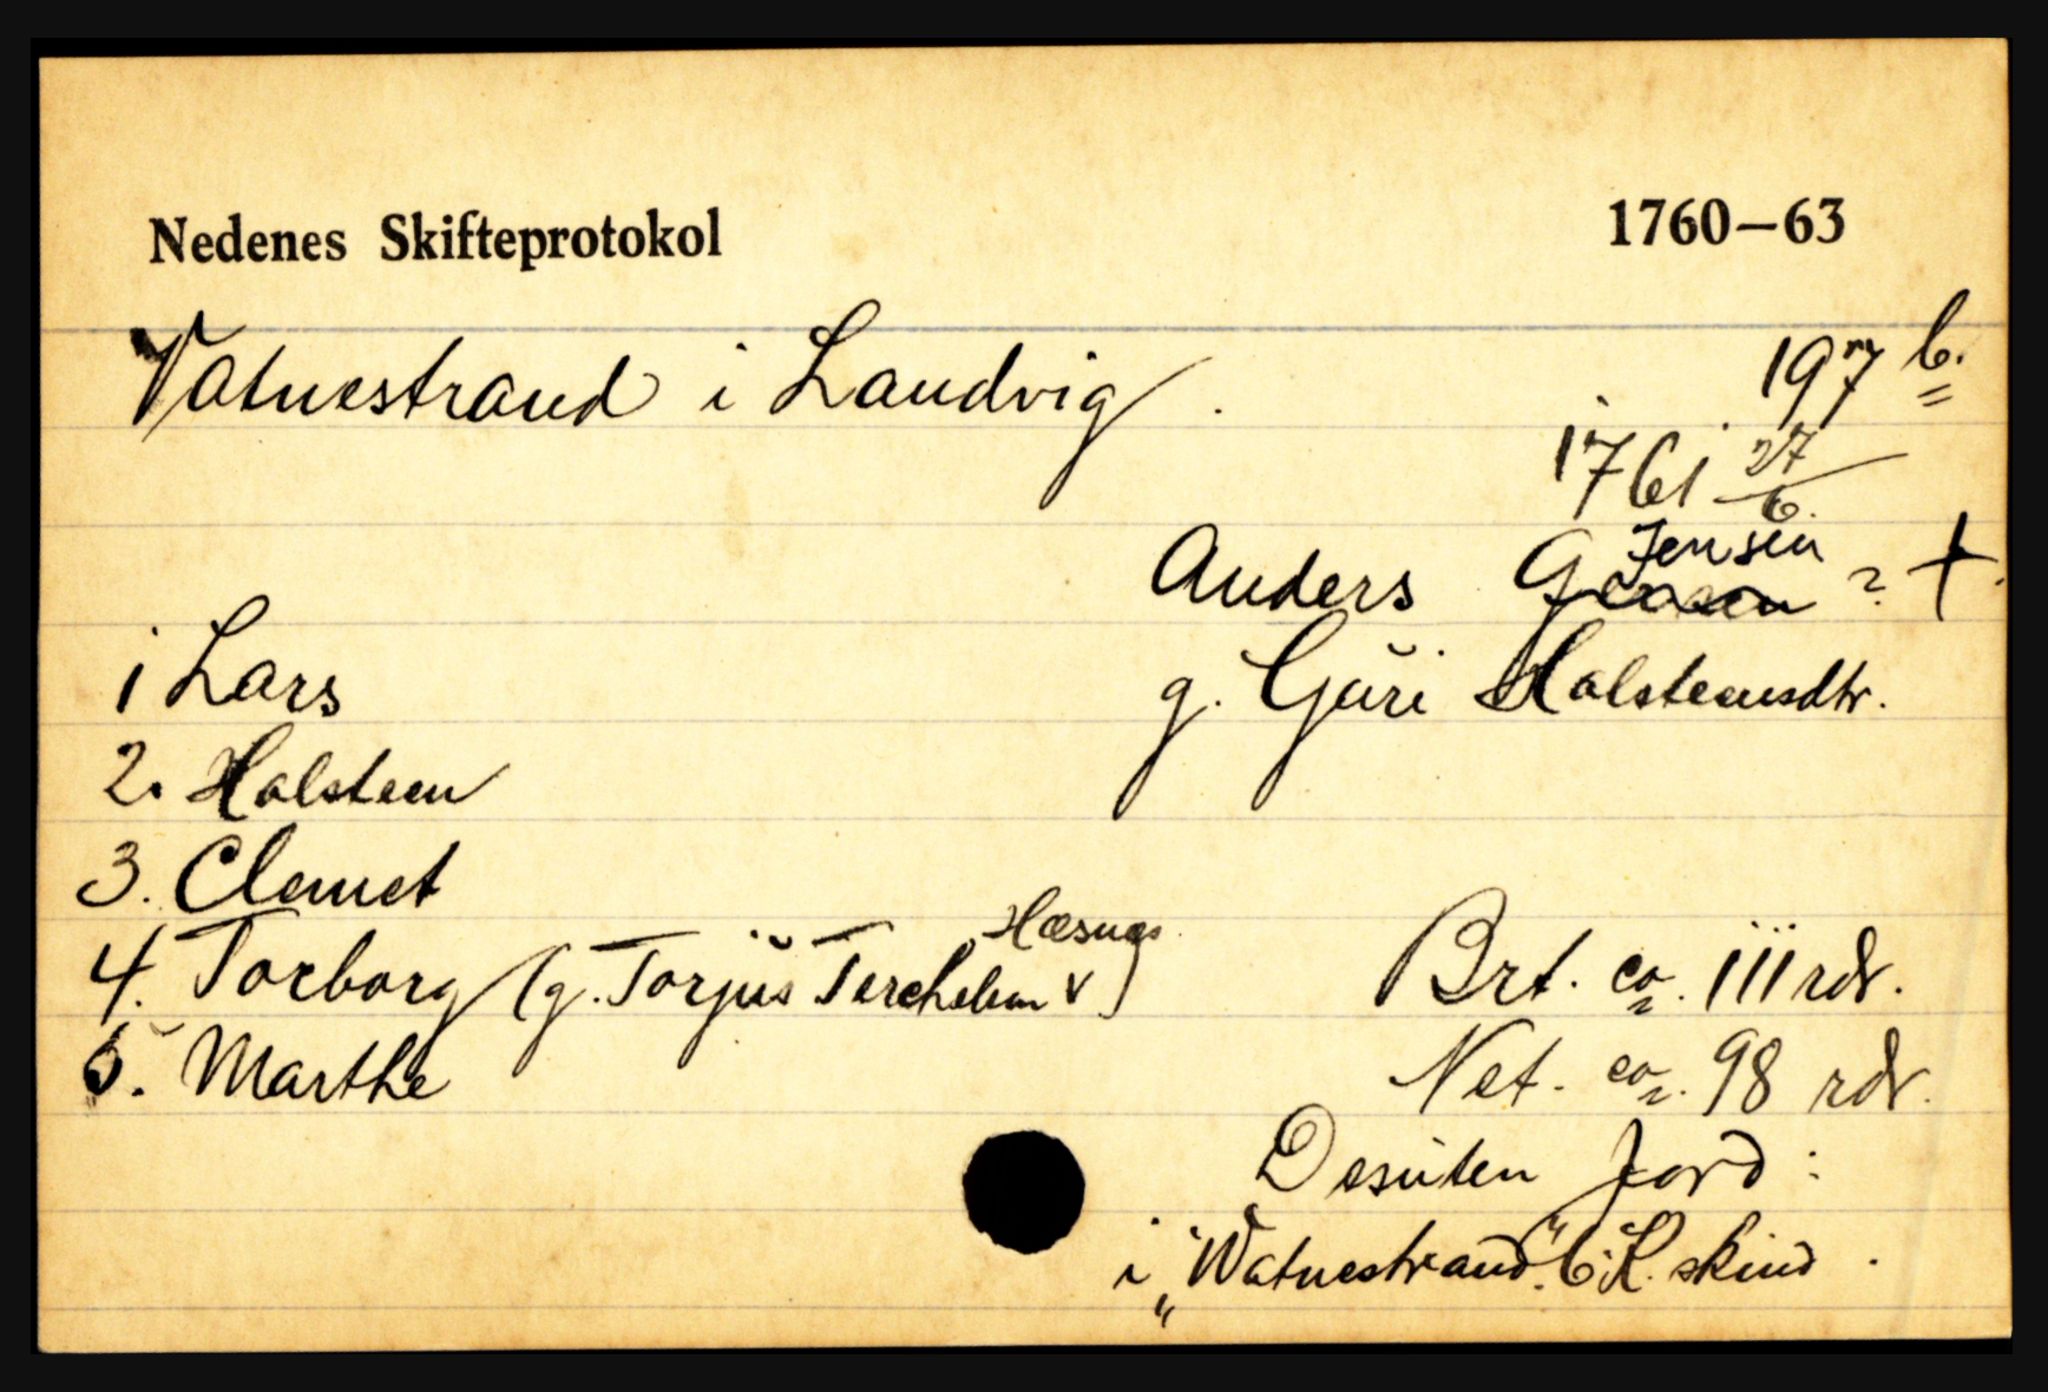 Nedenes Skifteprotokol 1760–63
Vatnestrand i Landvig. 197 b.
1761 27/6.
Jensen
Anders ? +.
1 Lars g. Guri Halsteensdtr.
2. Halsteen
3. Clemet
Hæsnes
4. Torborg (g. Torjus Terchelsen v) Brt. ca. 111 rdr.
5. Marthe Net. ca. 98 rdr.
Desuten Jord:
i „Watnestrand". 6 K. skind.